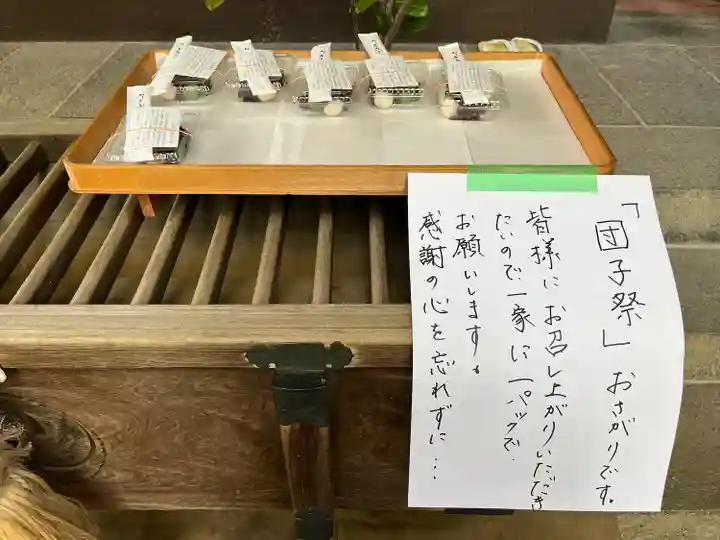 「団子祭」おさがりです。
皆様にお召し上がりいただき
たいので、一家に一パックで
お願いします。
感謝の心を忘れずに…